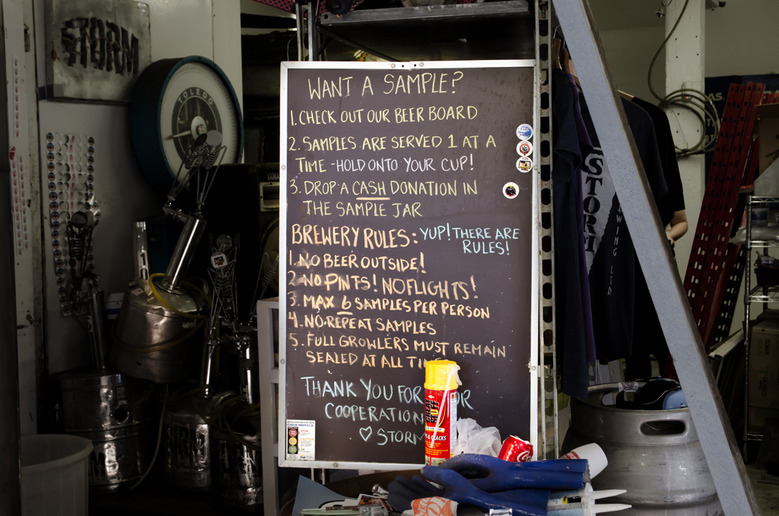 STORM
TOLEDO
WANT A SAMPLE?
1. CHECK OUT OUR BEER BOARD
2. SAMPLES ARE SERVED 1 AT A
TIME - HOLD ONTO YOUR CUP!
3. DROP A CASH DONATION IN
THE SAMPLE JAR
BREWERY RULES: YUP! THERE ARE
RULES!
1. NO BEER OUTSIDE!
2. NO PINTS! NO FLIGHTS!
3. MAX 6 SAMPLES PER PERSON
4. NO REPEAT SAMPLES
5. FULL GROWLERS MUST REMAIN
SEALED AT ALL
THANK YOU FOR
COOPERATION
♡ STORM
STORM